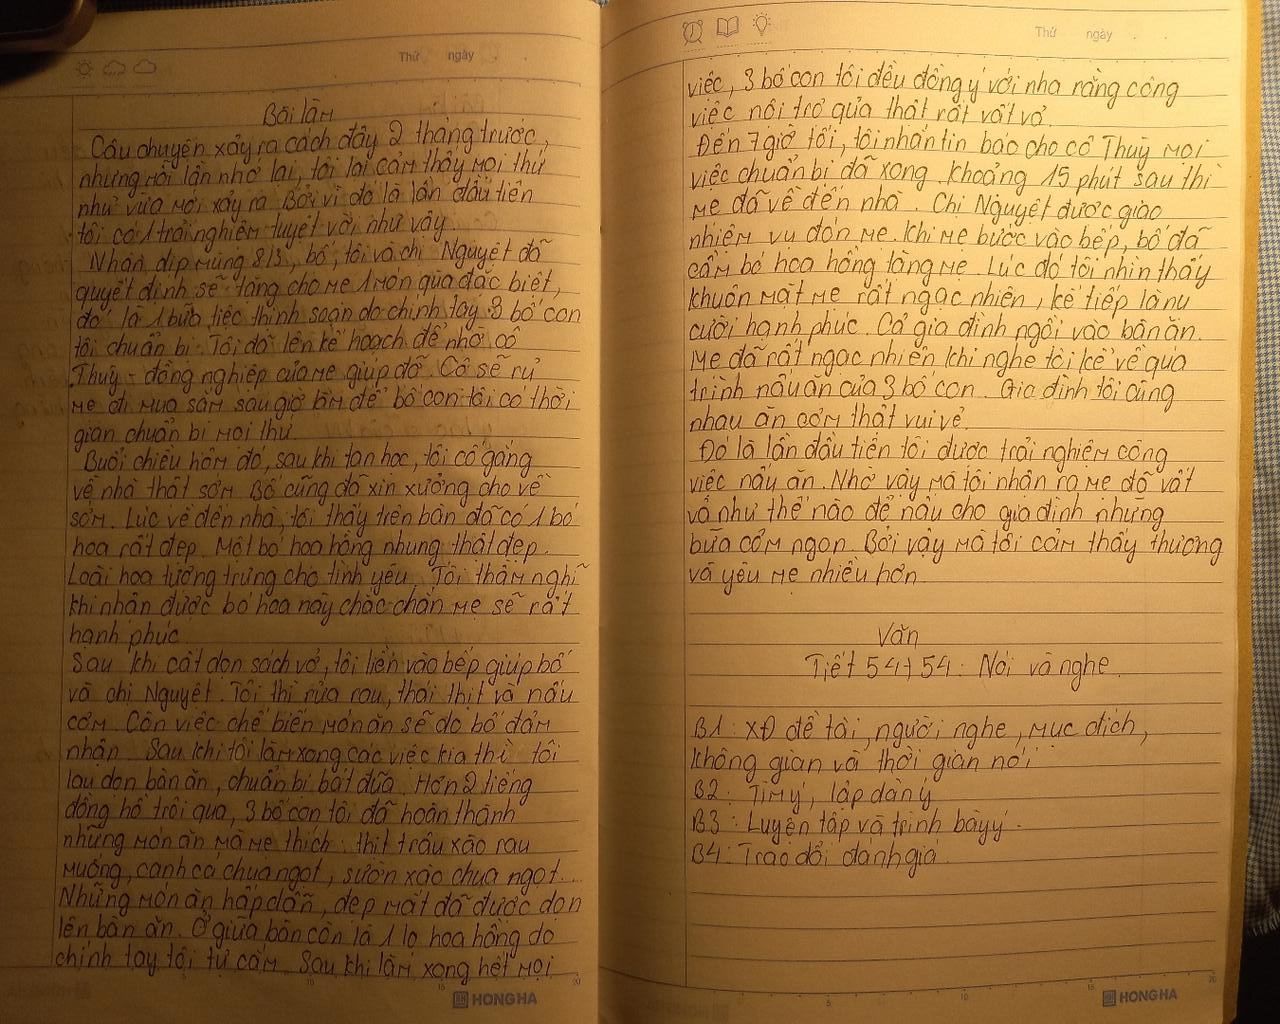 Thứ ngày . .
Bài làm
Câu chuyện xảy ra cách đây 2 tháng trước,
nhưng mỗi lần nhớ lại, tôi lại cảm thấy mọi thứ
như vừa mới xảy ra. Bởi vì đó là lần đầu tiên
tôi có 1 trải nghiệm tuyệt vời như vậy.
Nhân dịp mùng 8/3, bố, tôi và chị Nguyệt đã
quyết định sẽ tặng cho mẹ 1 món quà đặc biệt,
đó là 1 bữa tiệc thịnh soạn do chính tay 3 bố con
tôi chuẩn bị. Tôi đã lên kế hoạch để nhờ cô
Thuỳ - đồng nghiệp của mẹ giúp đỡ. Cô sẽ rủ
mẹ đi mua sắm sau giờ làm để bố con tôi có thời
gian chuẩn bị mọi thứ.
Buổi chiều hôm đó, sau khi tan học, tôi cố gắng
về nhà thật sớm. Bố cũng đã xin xưởng cho về
sớm. Lúc về đến nhà, tôi thấy trên bàn đã có 1 bó
hoa rất đẹp. Một bó hoa hồng nhung thật đẹp.
Loài hoa tượng trưng cho tình yêu. Tôi thầm nghĩ
khi nhận được bó hoa này chắc chắn mẹ sẽ rất
hạnh phúc.
Sau khi cất dọn sách vở, tôi liền vào bếp giúp bố
và chị Nguyệt. Tôi thì rửa rau, thái thịt và nấu
cơm. Còn việc chế biến món ăn sẽ do bố đảm
nhận. Sau khi tôi làm xong các việc kia thì tôi
lau dọn bàn ăn, chuẩn bị bát đũa. Hơn 2 tiếng
đồng hồ trôi qua, 3 bố con tôi đã hoàn thành
những món ăn mà mẹ thích: thịt trâu xào rau
muống, canh cá chua ngọt, sườn xào chua ngọt...
Những món ăn hấp dẫn, đẹp mắt đã được dọn
lên bàn ăn. Ở giữa bàn còn là 1 lọ hoa hồng do
chính tay tôi tự cắm. Sau khi làm xong hết mọi
HONG HA
Thứ ngày . .
việc, 3 bố con tôi đều đồng ý với nha rằng công
việc nội trợ quả thật rất vất vả.
Đến 7 giờ tối, tôi nhắn tin báo cho cô Thuỳ mọi
việc chuẩn bị đã xong. Khoảng 15 phút sau thì
mẹ đã về đến nhà. Chị Nguyệt được giao
nhiệm vụ đón mẹ. Khi mẹ bước vào bếp, bố đã
cầm bó hoa hồng tặng mẹ. Lúc đó tôi nhìn thấy
khuôn mặt mẹ rất ngạc nhiên, kế tiếp là nụ
cười hạnh phúc. Cả gia đình ngồi vào bàn ăn.
Mẹ đã rất ngạc nhiên khi nghe tôi kể về quá
trình nấu ăn của 3 bố con. Gia đình tôi cùng
nhau ăn cơm thật vui vẻ.
Đó là lần đầu tiên tôi được trải nghiệm công
việc nấu ăn. Nhờ vậy mà tôi nhận ra mẹ đã vất
vả như thế nào để nấu cho gia đình những
bữa cơm ngon. Bởi vậy mà tôi cảm thấy thương
và yêu mẹ nhiều hơn.
Văn
Tiết 54+54: Nói và nghe.
B1: XĐ đề tài, người nghe, mục đích,
không gian và thời gian nói
B2: Tìm ý, lập dàn ý
B3: Luyện tập và trình bàyy.
B4: Trao đổi đánh giá.
HONG HA